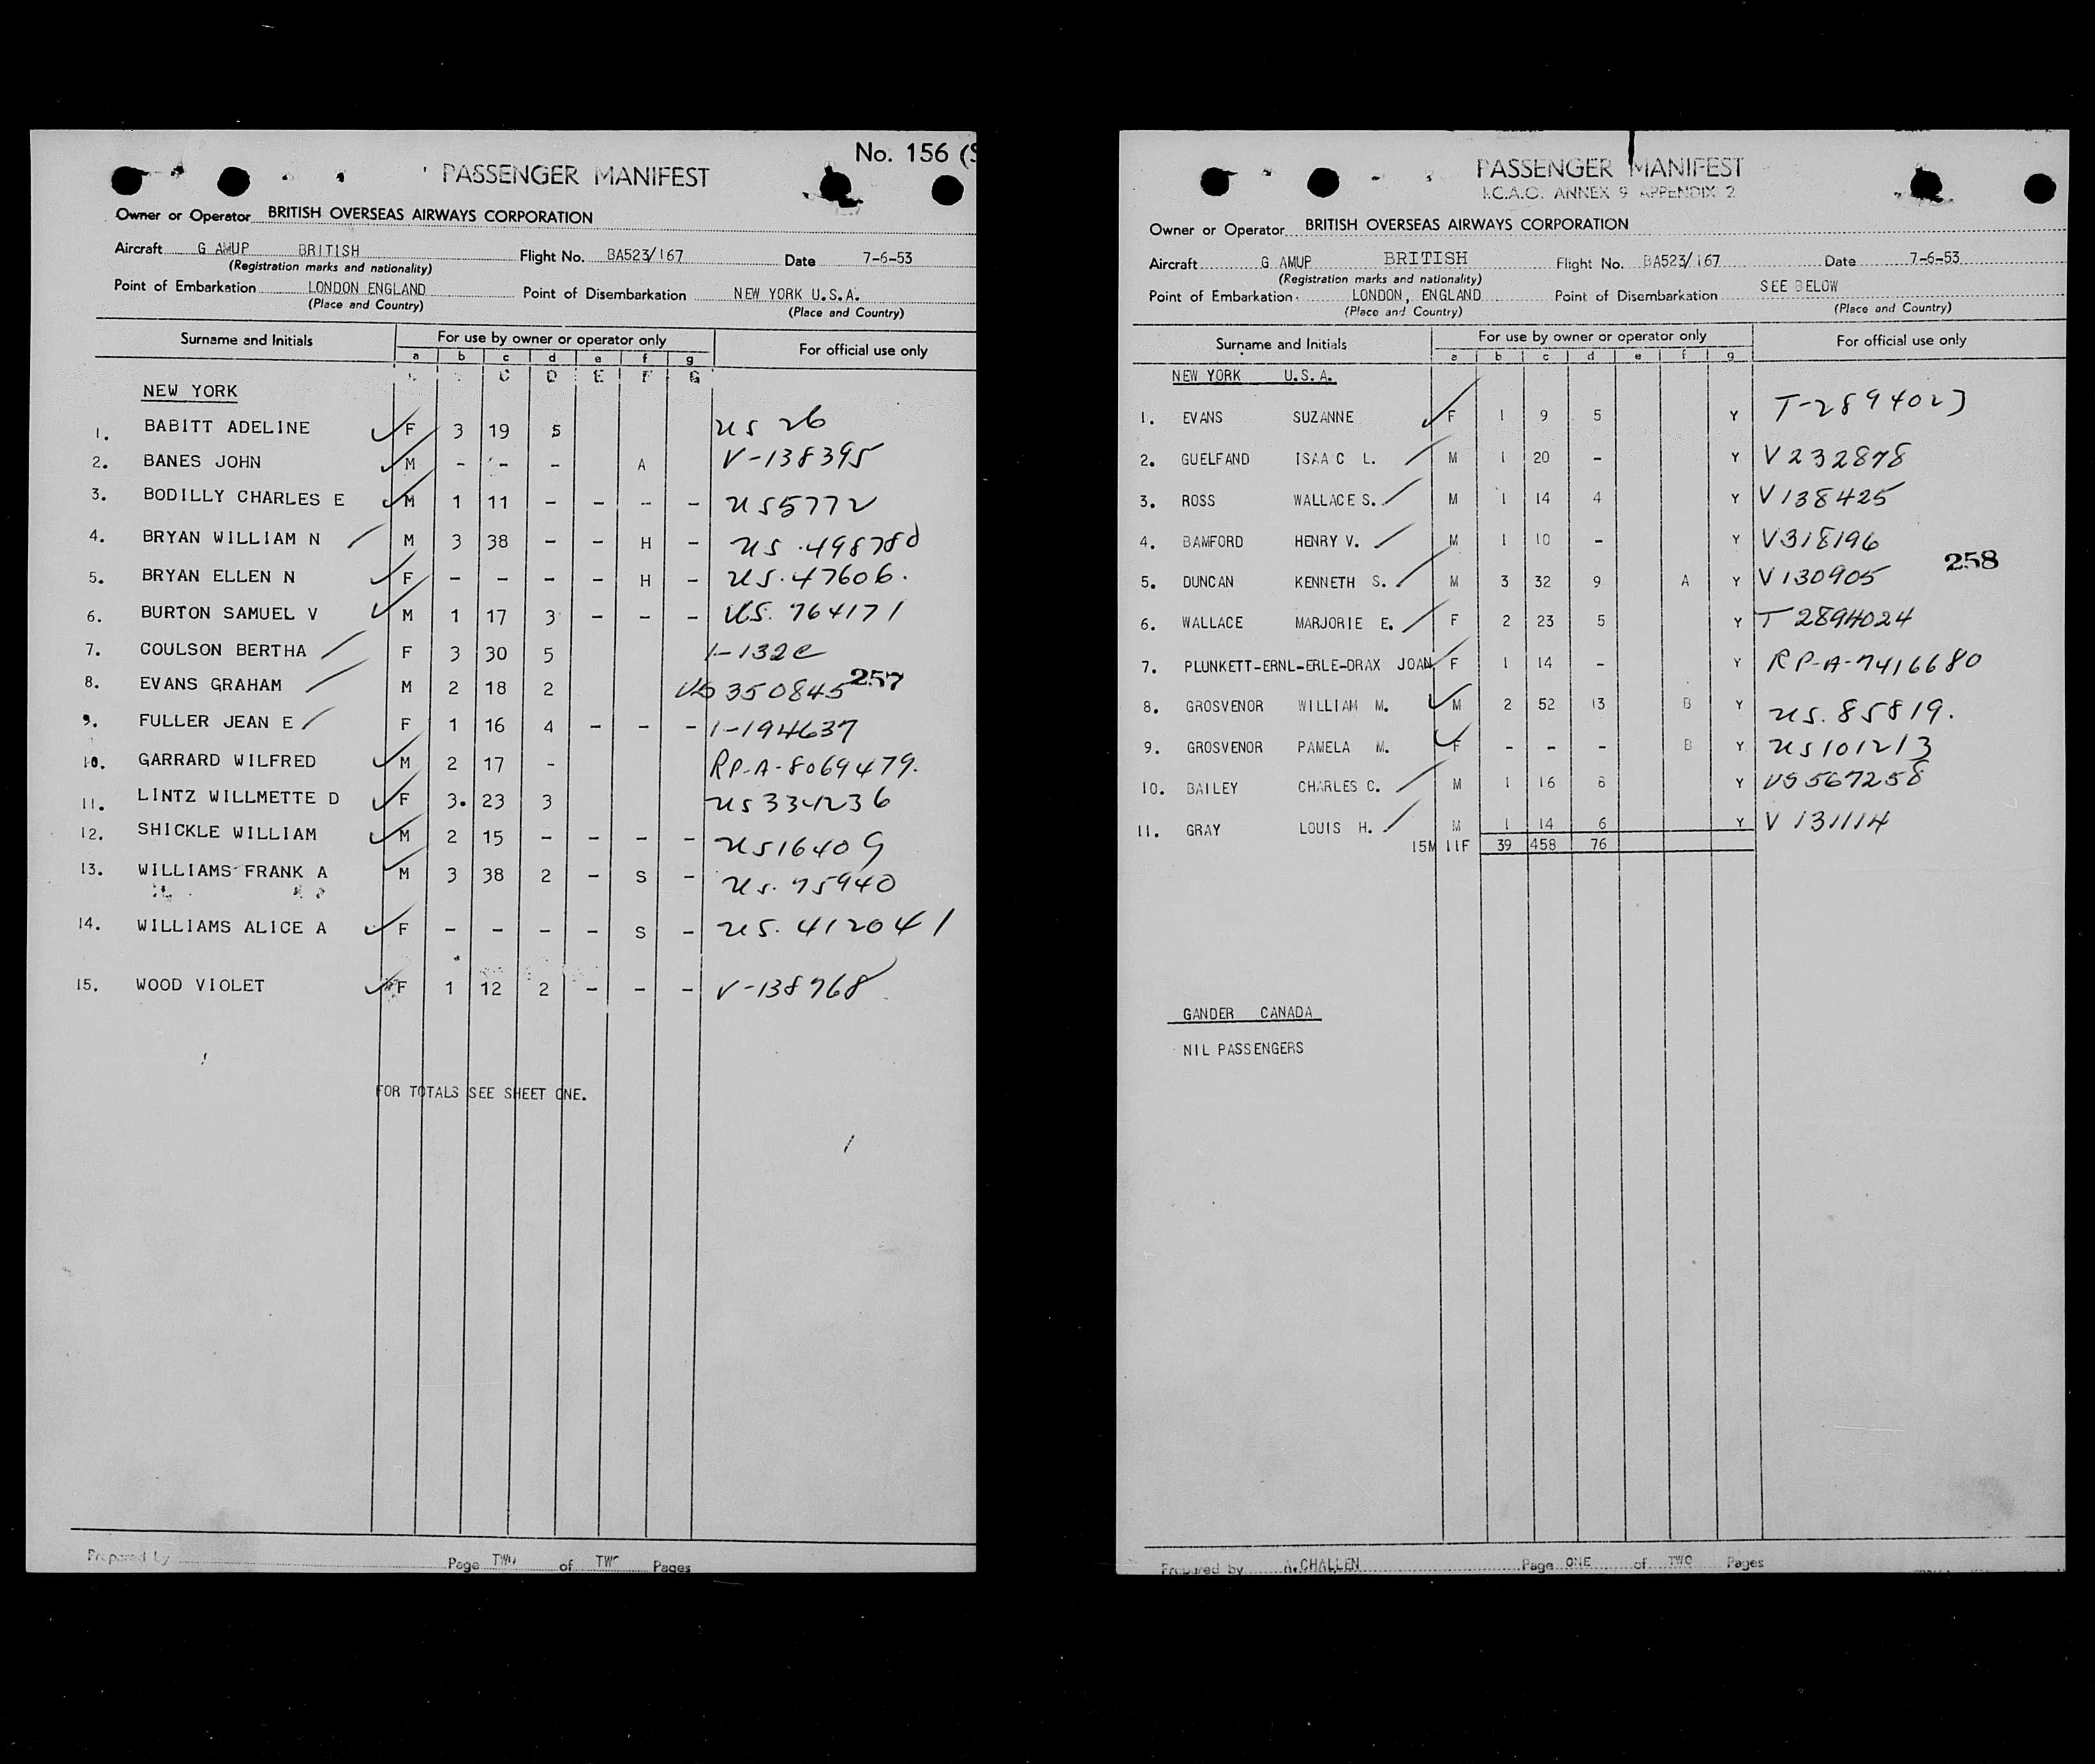 No. 156 (S
PASSENGER MANIFEST
Owner or Operator BRITISH OVERSEAS AIRWAYS CORPORATION
Aircraft G AMUP BRITISH Flight No. BA523/167 Date 7-6-53
(Registration marks and nationality)
Point of Embarkation LONDON ENGLAND Point of Disembarkation NEW YORK U.S.A.
(Place and Country) (Place and Country)
Surname and Initials For use by owner or operator only For official use only
a b c d e f g
C D E F G
NEW YORK
1. BABITT ADELINE F 3 19 5 US 26
2. BANES JOHN M - - - A V-138395
3. BODILLY CHARLES E M 1 11 - - - - US5772
4. BRYAN WILLIAM N M 3 38 - - H - US.498780
5. BRYAN ELLEN N F - - - - H - US.47606.
6. BURTON SAMUEL V M 1 17 3 - - - US.764171
7. COULSON BERTHA F 3 30 5
8. EVANS GRAHAM M 2 18 2 US 350845 257
9. FULLER JEAN E F 1 16 4 - - - 1-194637
10. GARRARD WILFRED M 2 17 - RP-A-8069479.
11. LINTZ WILLMETTE D F 3. 23 3 US334236
12. SHICKLE WILLIAM M 2 15 - - - - US16409
13. WILLIAMS FRANK A M 3 38 2 - S - US.75940
14. WILLIAMS ALICE A F - - - - S - US.412041
15. WOOD VIOLET F 1 12 2 - - - V-138768
FOR TOTALS SEE SHEET ONE.
Prepared by Page TWO of TWO Pages
PASSENGER MANIFEST
I.C.A.O. ANNEX 9 APPENDIX 2
Owner or Operator BRITISH OVERSEAS AIRWAYS CORPORATION
Aircraft G AMUP BRITISH Flight No. BA523/167 Date 7-6-53
(Registration marks and nationality)
Point of Embarkation LONDON, ENGLAND Point of Disembarkation SEE BELOW
(Place and Country) (Place and Country)
Surname and Initials For use by owner or operator only For official use only
a b c d e f g
NEW YORK U.S.A.
1. EVANS SUZANNE F 1 9 5 Y T-2894023
2. GUELFAND ISAAC L. M 1 20 - Y V232878
3. ROSS WALLACE S. M 1 14 4 Y V138425
4. BAMFORD HENRY V. M 1 10 - Y V318196
258
5. DUNCAN KENNETH S. M 3 32 9 A Y V130905
6. WALLACE MARJORIE E. F 2 23 5 Y T 2894024
7. PLUNKETT-ERNL-ERLE-DRAX JOAN F 1 14 - Y RP-A-7416680
8. GROSVENOR WILLIAM M. M 2 52 13 B Y US.85819.
9. GROSVENOR PAMELA M. F - - - B Y US101213
10. BAILEY CHARLES C. M 1 16 8 Y US567258
11. GRAY LOUIS H. M 1 14 6 Y V 131114
15M 11F 39 458 76
GANDER CANADA
NIL PASSENGERS
Prepared by A.CHALLEN Page ONE of TWO Pages